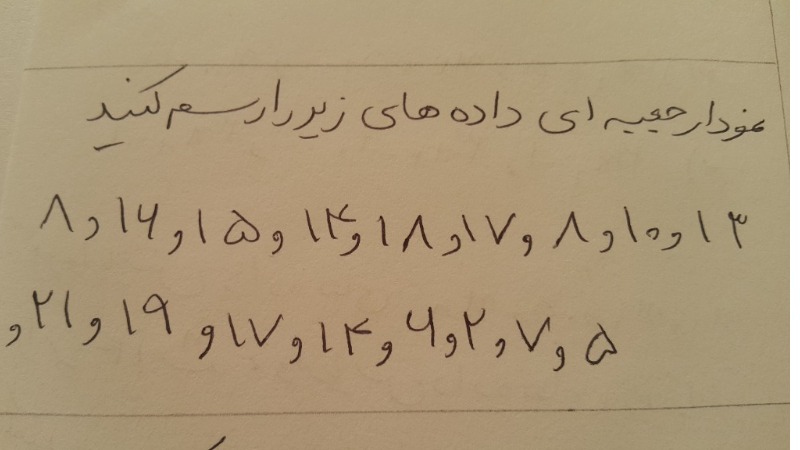 نمودار جعبه ای داده های زیر را رسم کنید
۱۳ و ۱۰ و ۸ و ۱۷ و ۱۸ و ۱۴ و ۱۵ و ۱۶ و ۸
و ۲۱ و ۱۹ و ۱۷ و ۱۴ و ۶ و ۲ و ۷ و ۵